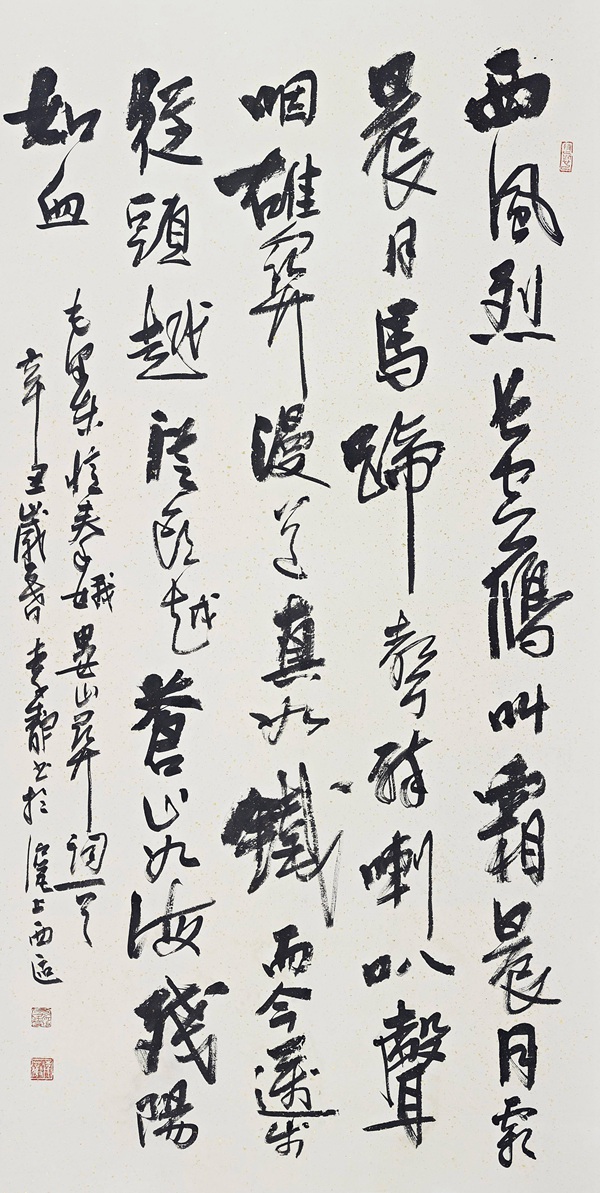 西風烈長空鴈叫霜晨月霜
晨月馬蹄聲碎喇叭聲
咽雄關漫道真如鐵而今邁步
從頭越從頭越蒼山如海殘陽
如血
毛澤東憶秦娥婁山關詞一首
辛丑歲李靜書於滬上西區